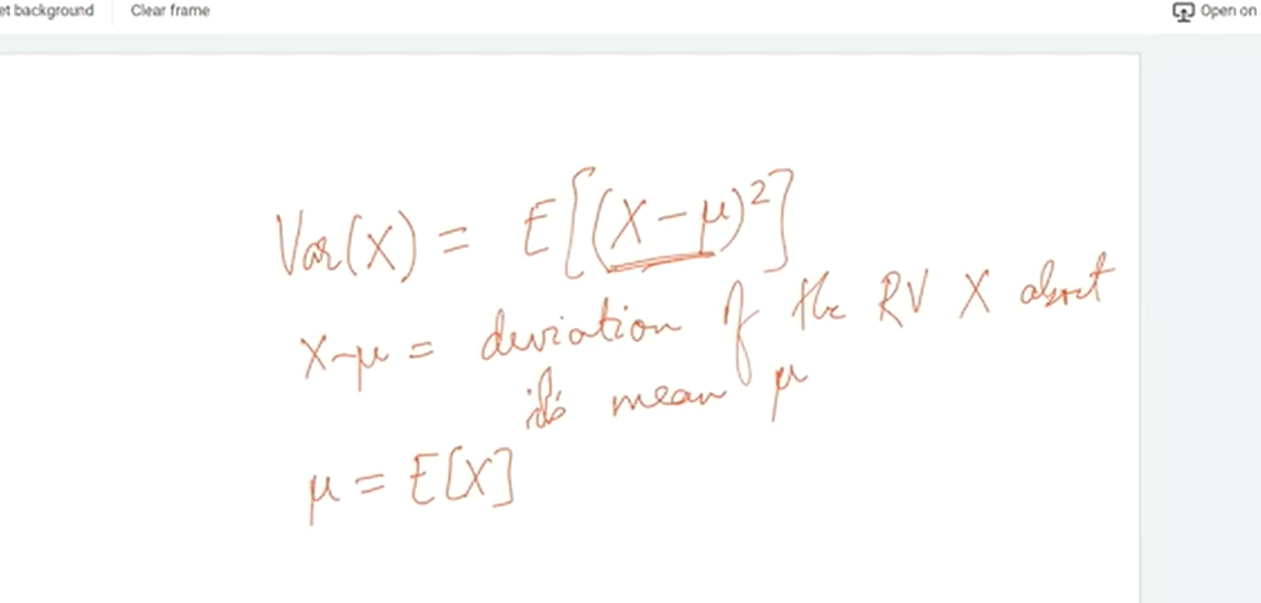 et background Clear frame Open on
Var(X) = E[(X-μ)²]
X-μ = deviation of the RV X about
its mean μ
μ = E[X]